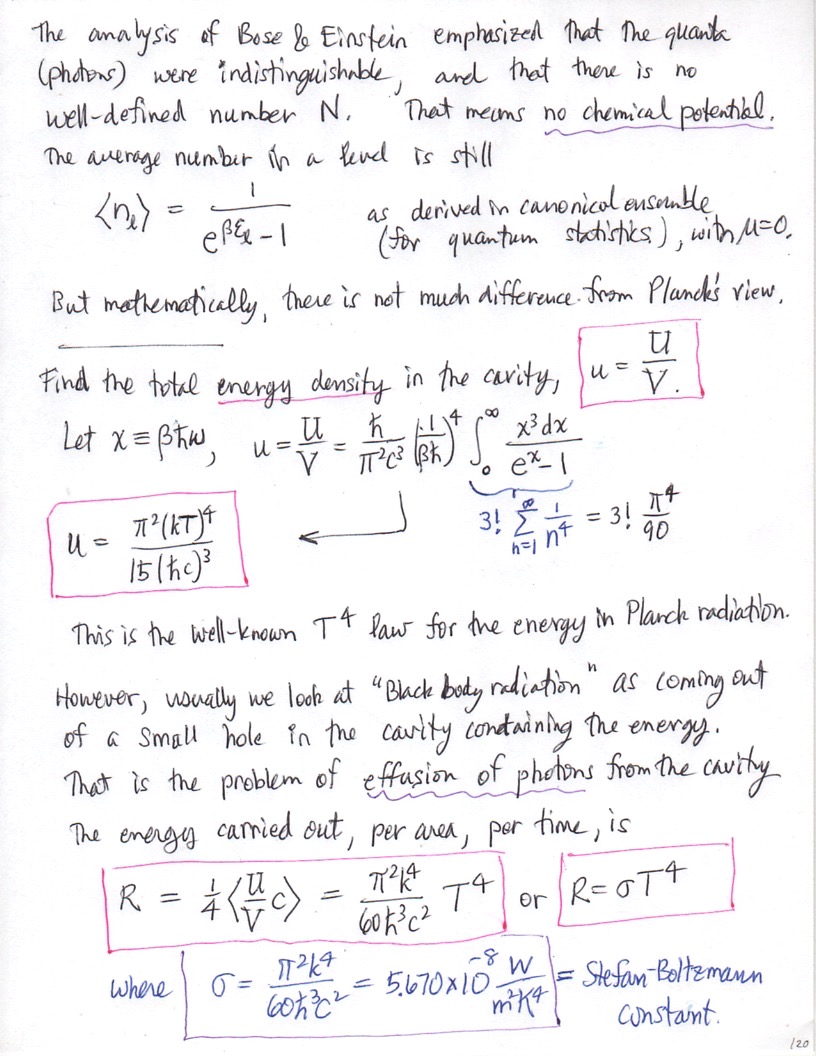 The analysis of Bose & Einstein emphasized that the quanta
(photons) were indistinguishable, and that there is no
well-defined number N. That means no chemical potential.
The average number in a level is still
⟨nₗ⟩ = 1/(e^{βεₗ} - 1) as derived in canonical ensemble
(for quantum statistics), with μ=0.
But mathematically, there is not much difference from Planck's view.
Find the total energy density in the cavity, u = U/V.
Let x ≡ βħω, u = U/V = ħ/(π²c³) (1/(βħ))⁴ ∫₀^∞ x³dx/(eˣ-1)
3! Σ_{n=1}^∞ 1/n⁴ = 3! π⁴/90
u = π²(kT)⁴/(15(ħc)³)
This is the well-known T⁴ law for the energy in Planck radiation.
However, usually we look at "Black body radiation" as coming out
of a small hole in the cavity containing the energy.
That is the problem of effusion of photons from the cavity
The energy carried out, per area, per time, is
R = 1/4 ⟨U/V c⟩ = π²k⁴/(60ħ³c²) T⁴ or R=σT⁴
where σ = π²k⁴/(60ħ³c²) = 5.670×10⁻⁸ W/(m²K⁴) = Stefan-Boltzmann
constant.
120